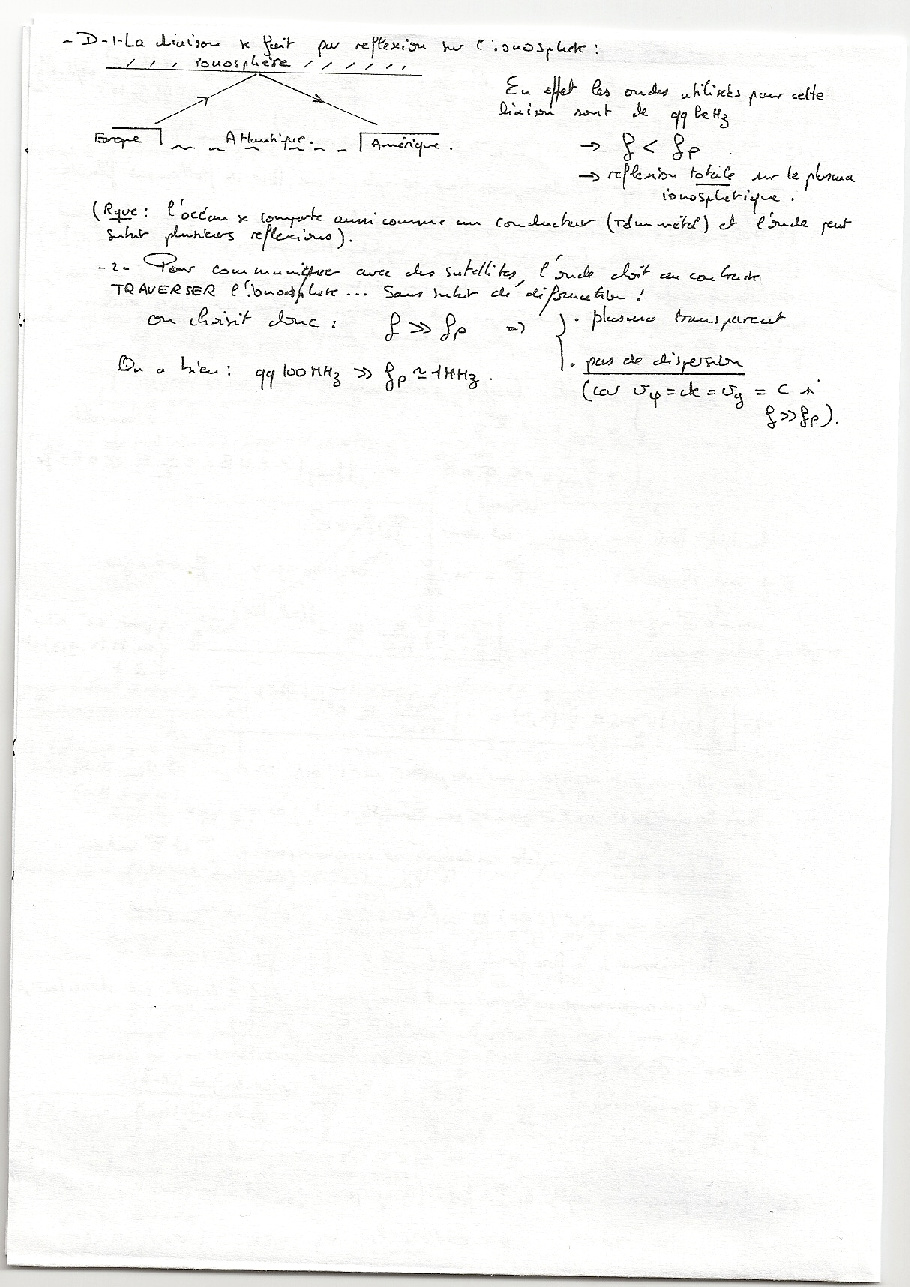 - D-1- La liaison se fait par reflexion sur l'ionosphère :
ionosphère
Europe
Atlantique.
Amérique.
En effet les ondes utilisées pour cette
liaison sont de qq kHz
→ f < fp
→ reflexion totale sur le plasma
ionosphérique.
(Rque : l'océan se comporte aussi comme un conducteur (Td un métal) et l'onde peut
subir plusieurs reflexions).
-2- Pour communiquer avec des satellites, l'onde doit au contraire
TRAVERSER l'ionosphère... Sans subir de déformation !
on choisit donc : f >> fp ⇒ . plasma transparent
. pas de dispersion
On a bien : qq 100 MHz >> fp ≃ 1MHz.
(car vφ = cte = vg = c si
f >> fp).